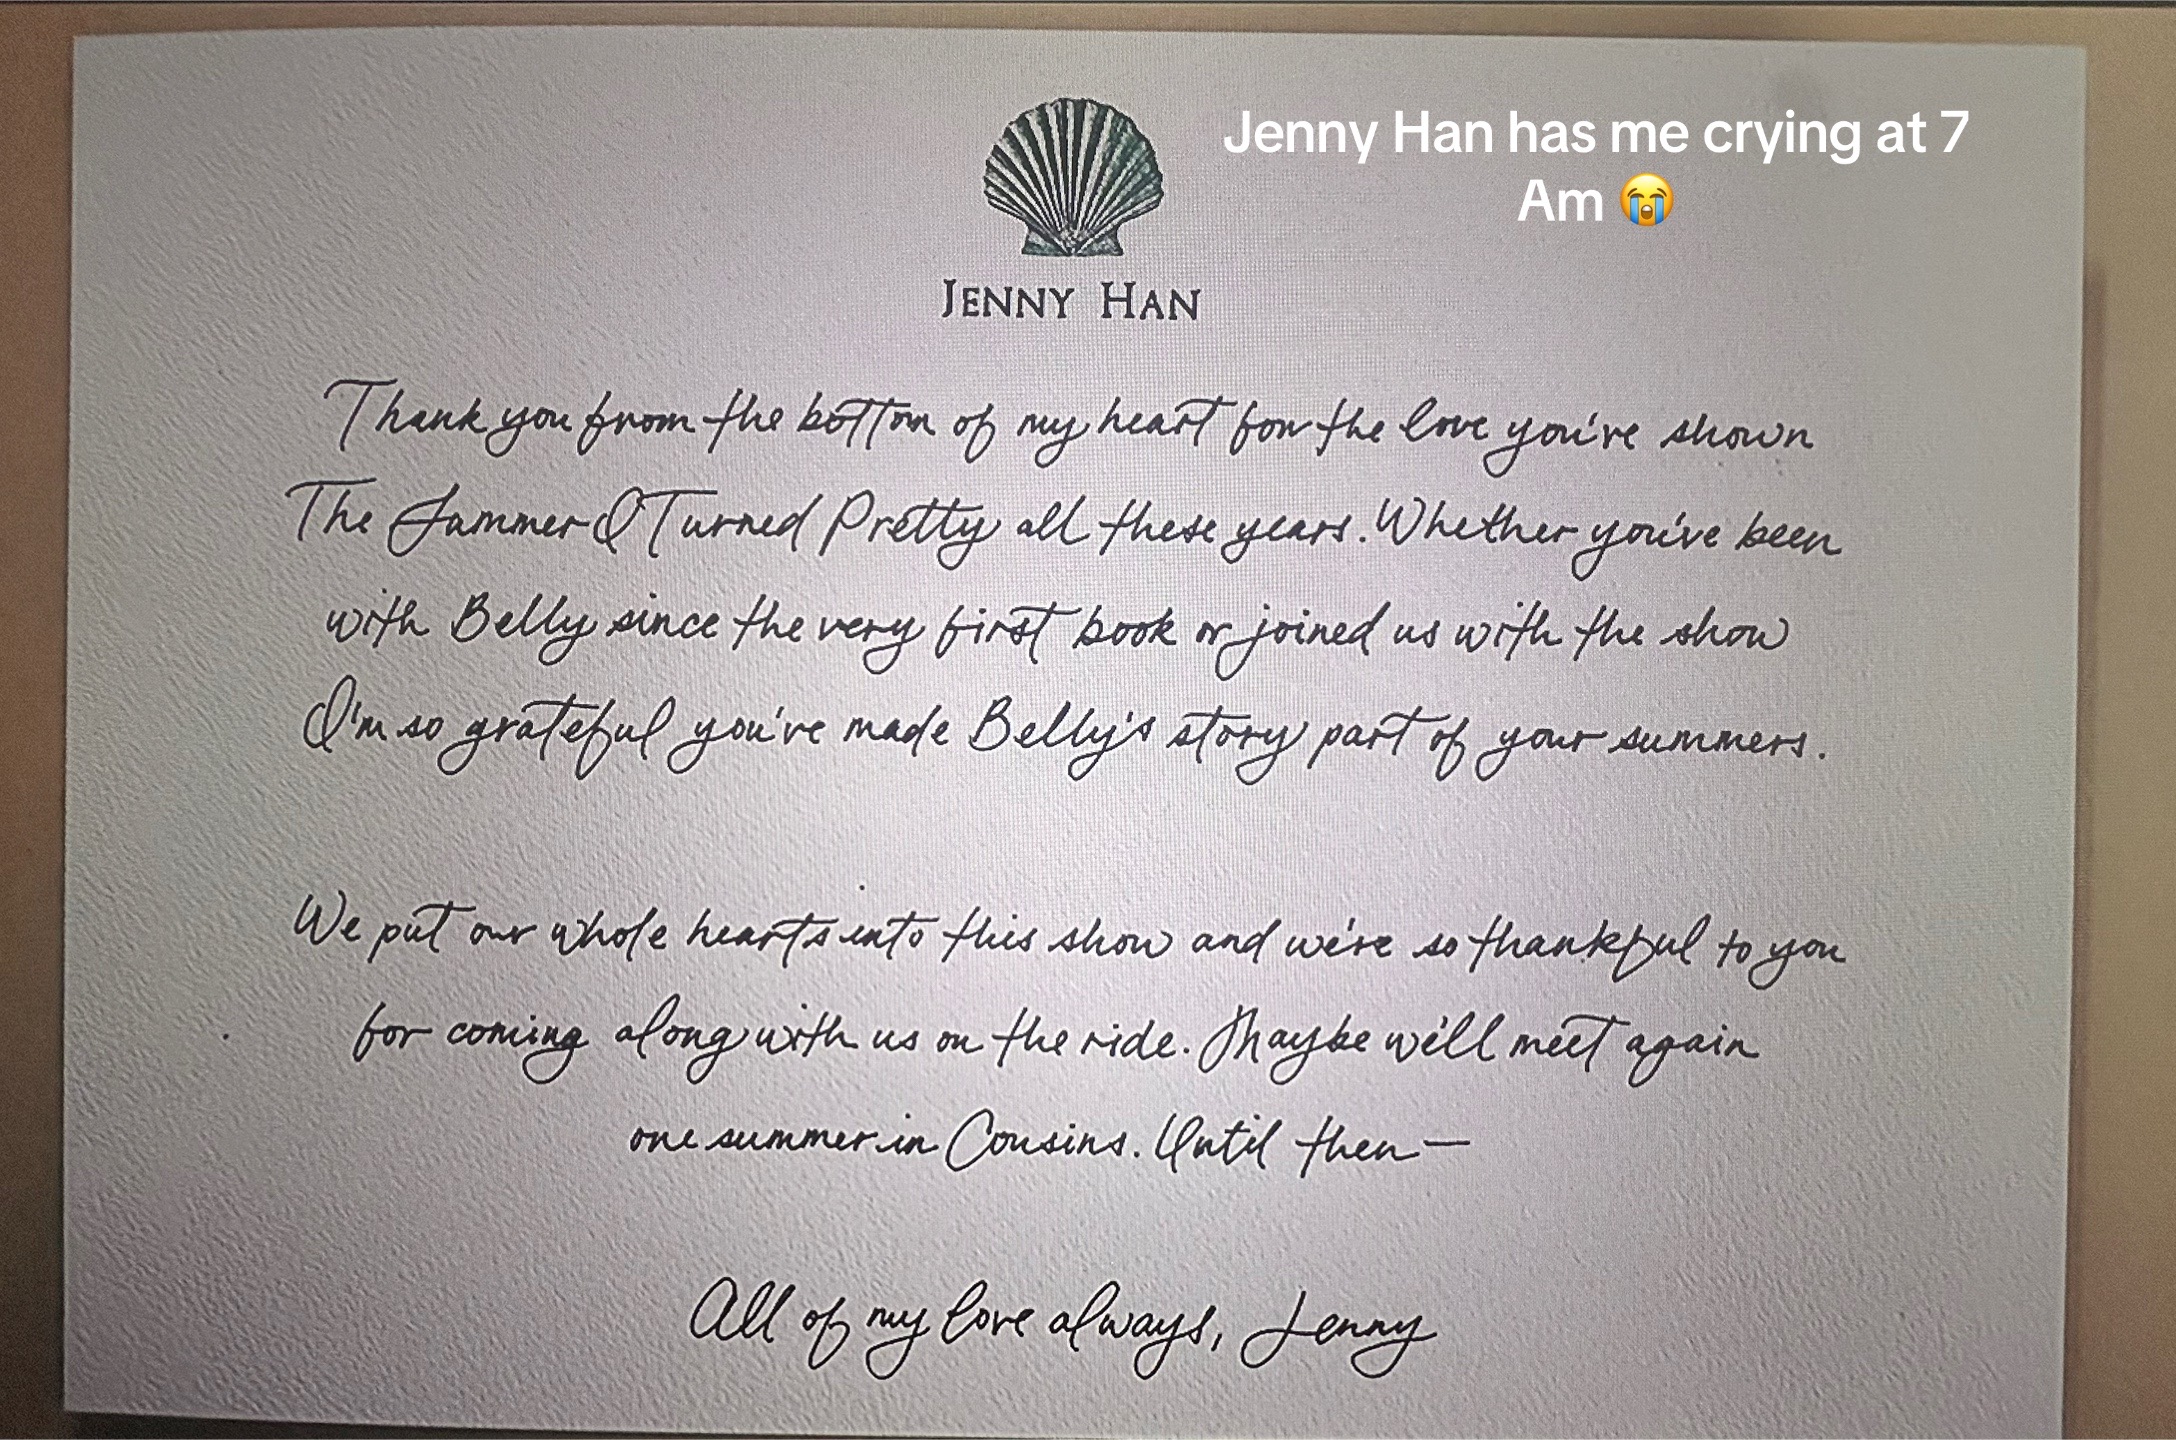 Jenny Han has me crying at 7
Am 😭
JENNY HAN
Thank you from the bottom of my heart for the love you've shown
The Summer I Turned Pretty all these years. Whether you've been
with Belly since the very first book or joined us with the show
I'm so grateful you've made Belly's story part of your summers.
We put our whole hearts into this show and we're so thankful to you
for coming along with us on the ride. Maybe we'll meet again
one summer in Cousins. Until then—
All of my love always, Jenny